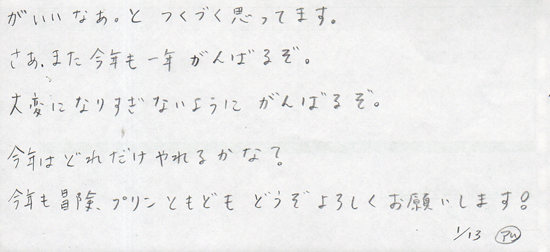 がいいなあ。と つくづく思ってます。
さあ、また今年も一年 がんばるぞ。
大変になりすぎないように がんばるぞ。
今年は どれだけやれるかな?
今年も冒険、プリンともども どうぞよろしくお願いします!
1/13